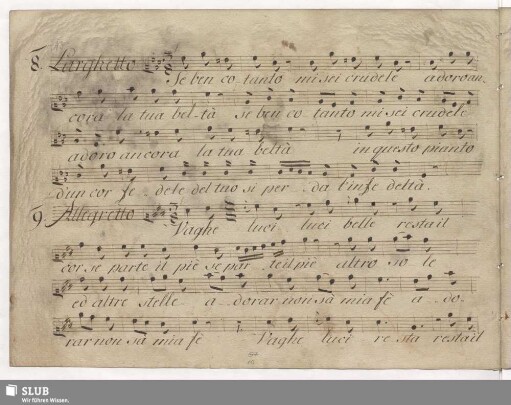 8. Larghetto
Se ben co tanto mi sei crudele adoro an
cora la tua bel-tà se ben co-tanto mi sei crudele
adoro ancora la tua beltà in questo pianto
d'un cor fe-dele del tuo si per-da l'infe deltà.
9. Allegretto
Vaghe luci luci belle resta il
cor se parte il piè se par-te il piè altro so le
ed altre stelle a-dorar non sà mia fè a-do-
rar non sà mia fè Vaghe luci re-sta resta il
SLUB
Wir führen Wissen.